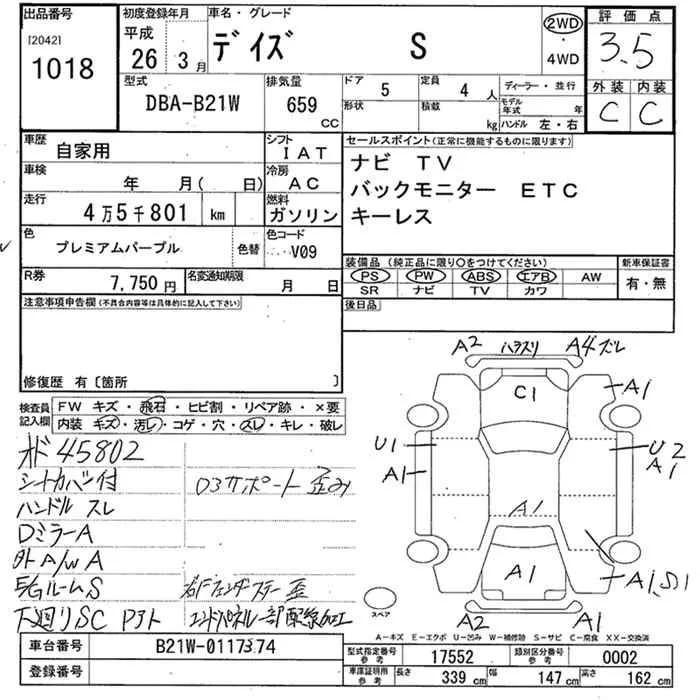 出品番号
[2042]
1018
初度登録年月
平成
26 3月
車名・グレード
デイズ S
2WD
・
4WD
評価点
3.5
外装 内装
C C
型式
DBA-B21W
排気量
659
CC
ドア 5
定員 4 人
形状
積載 kg
ディーラー・並行
モデル年式 年
ハンドル 左・右
車歴
自家用
シフト
IAT
車検
年 月( 日)
冷房
AC
走行
4万5千801 km
燃料
ガソリン
色
プレミアムパープル
色替
色コード
V09
R券
7,750円
名変通知期限
月 日
セールスポイント(正常に機能するものに限ります)
ナビ TV
バックモニター ETC
キーレス
装備品(純正品に限り○をつけてください)
PS PW ABS エアB AW
SR ナビ TV カワ
新車保証書
有・無
後日品
注意事項申告欄(不具合内容等は具体的に記入して下さい)
修復歴 有〔箇所 〕
検査員
記入欄
FW キズ・飛石・ヒビ割・リペア跡・×要
内装 キズ・汚レ・コゲ・穴・スレ・キレ・破レ
オド45802
シートカバー付
ハンドル スレ
Dミラー A
外A/W A
E/GルームS
下廻りSC Pアト
D3サポート歪み
右Fフェンダーステー歪
エンドパネル一部 配線加工
A2 ハラスリ A4ズレ
C1
A1
U1
A1
U2
A1
A1
A1
A1,S1
A2
A1
スペア
A-キズ E-エクボ U-凹み W-補修跡 S-サビ C-腐食 XX-交換済
車台番号
B21W-0117374
登録番号
型式指定番号
参考
17552
類別区分番号
参考
0002
車庫証明用
参考
長さ 339 cm 幅 147 cm 高さ 162 cm